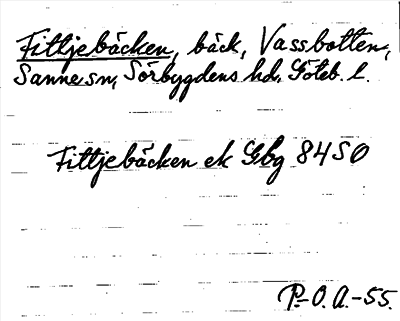 Fittjebäcken, bäck, Vassbotten,
Sanne sn, Sörbygdens hd, Göteb. l.
Fittjebäcken ek Gbg 84 SO
P.-O. A.-55.